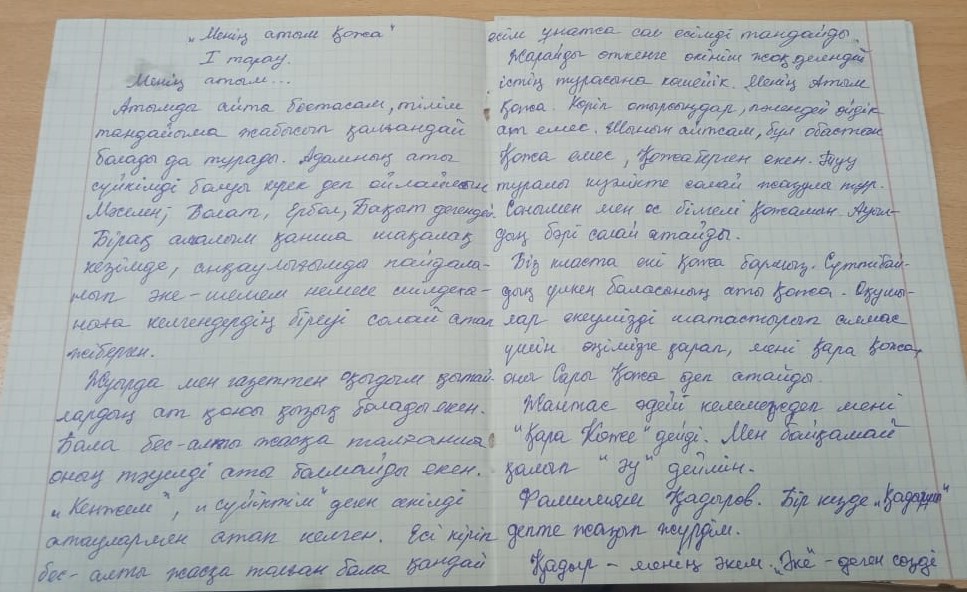 „Менің атым Қожа"
I тарау.
Менің атым...
Атымды айта бастасам, тілім
таңдайыма жабысып қалғандай
болады да тұрады. Адамның аты
сүйкімді болуы керек деп ойлаймын
Мәселен, Болат, Ербол, Бақыт дегендей.
Бірақ амалым қанша шақалақ
кезімде, аңқаулығымды пайдала-
нып әке-шешем немесе шілдеха-
наға келгендердің біреуі солай атап
жіберген.
Жуырда мен газеттен оқыдым қытай-
лардың ат қоюы қызық болады екен.
Бала бес-алты жасқа толғанша
оның тәуелді аты болмайды екен.
„Кенжем", „сүйіктім" деген секілді
атаулармен атап келген. Есі кіріп
бес-алты жасқа толған бала қандай
есім ұнатса сол есімді таңдайды.
Жарайды өткенге өкініш жоқ дегендей
істің турасына көшейік. Менің Атым
Қожа. Көріп отырсыңдар, пәлендей әйдік
ат емес. Шынын айтсам, бұл обастан
Қожа емес, Қожаберген екен. Туу
туралы куәлікте солай жазулы тұр.
Сонымен мен өс білгелі Қожамын. Ауыл-
дың бәрі солай атайды.
Біз класта екі Қожа бармыз. Сүттібай-
дың үлкен баласының аты Қожа. Оқушы-
лар екеумізді шатастырып алмас
үшін өңімізге қарап, мені Қара Қожа,
оны Сары Қожа деп атайды.
Жантас әдейі келемеждеп мені
"Қара Көже" дейді. Мен байқамай
қалып "әу" деймін.
Фамилиям Қадыров. Бір кезде „Қадырұлы"
депте жазып жүрдім.
Қадыр - менің әкем. „Әке" - деген сөзді